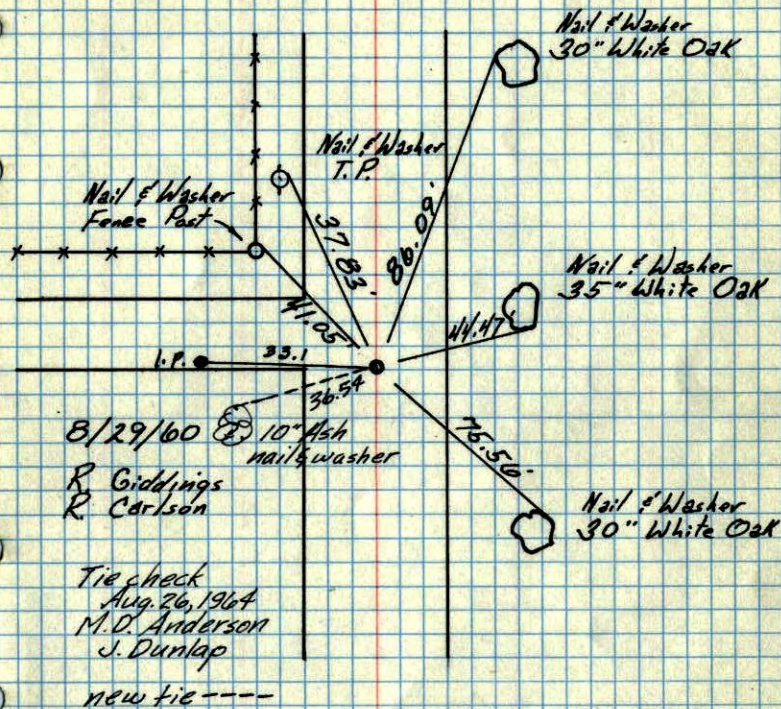 Nail & Washer
30" White Oak
Nail & Washer
T.P.
Nail & Washer
Fence Post
37.83'
86.09'
41.05'
Nail & Washer
35" White Oak
44.47'
I.P.
33.1
36.54
8/29/60
10" Ash
nail & washer
R. Giddings
R. Carlson
75.56'
Nail & Washer
30" White Oak
Tie check
Aug. 26, 1964
M.D. Anderson
J. Dunlap
new tie ----